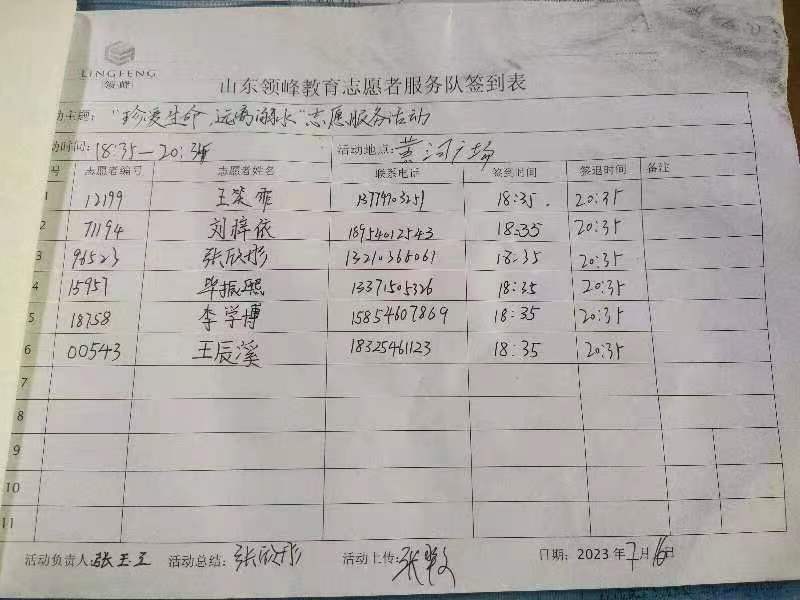 LINGFENG
领峰
山东领峰教育志愿者服务队签到表
动主题："珍爱生命 远离溺水"志愿服务活动
动时间：18:35—20:35 活动地点：黄河广场
号 志愿者编号 志愿者姓名 联系电话 签到时间 签退时间 备注
1 12199 王 菲 18:35. 20:35
2 71194 刘梓依 18954012543 18:35 20:35
3 96523 张欣彤 13210365061 18:35 20:35
4 15957 毕振熙 13371505326 18:35 20:35
5 18758 李学博 15854607869 18:35 20:35
6 00543 王辰溪 18325461123 18:35 20:35
7
8
9
10
11
活动负责人：张玉玉 活动总结：张欣彤 活动上传：张 日期：2023年7月16日